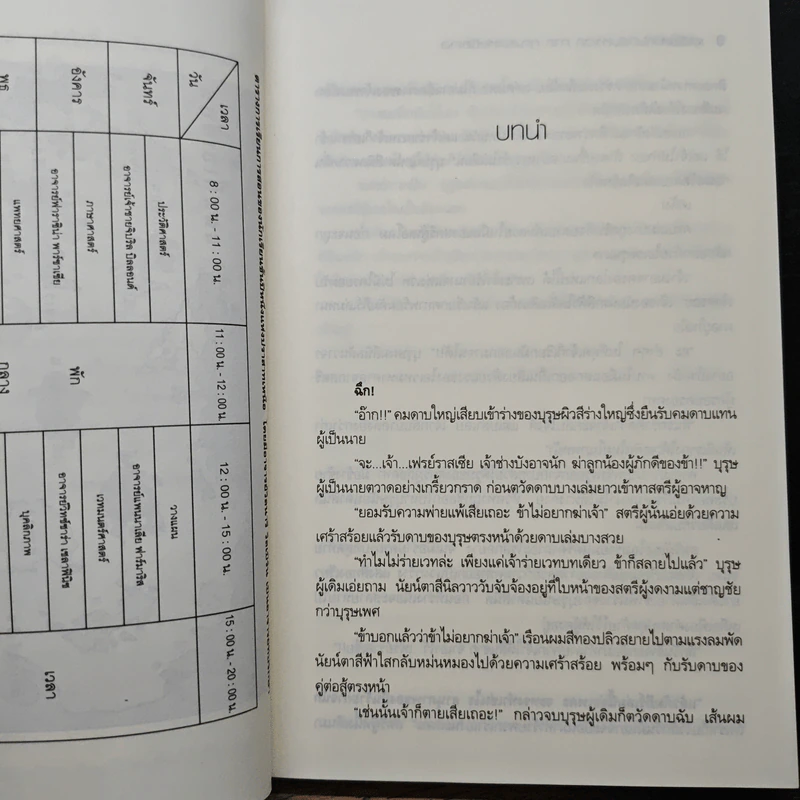 บทนำ
ฉึก!
"อ๊าก!!" คมดาบใหญ่เสียบเข้าร่างของบุรุษผิวสีร่างใหญ่ซึ่งยืนรับคมดาบแทน
ผู้เป็นนาย
"จะ...เจ้า...เฟรย์ราสเซีย เจ้าช่างบังอาจนัก ฆ่าลูกน้องผู้ภักดีของข้า!!" บุรุษ
ผู้เป็นนายตวาดอย่างเกรี้ยวกราด ก่อนตวัดดาบบางเล่มยาวเข้าหาสตรีผู้อาจหาญ
"ยอมรับความพ่ายแพ้เสียเถอะ ข้าไม่อยากฆ่าเจ้า" สตรีผู้นั้นเอ่ยด้วยความ
เศร้าสร้อยแล้วรับดาบของบุรุษตรงหน้าด้วยดาบเล่มบางสวย
"ทำไมไม่ร่ายเวทล่ะ เพียงแค่เจ้าร่ายเวทบทเดียว ข้าก็สลายไปแล้ว" บุรุษ
ผู้เดิมเอ่ยถาม นัยน์ตาสีนิลวาววับจับจ้องอยู่ที่ใบหน้าของสตรีผู้งดงามแต่ชาญชัย
กว่าบุรุษเพศ
"ข้าบอกแล้วว่าข้าไม่อยากฆ่าเจ้า" เรือนผมสีทองปลิวสยายไปตามแรงลมพัด
นัยน์ตาสีฟ้าใสกลับหม่นหมองไปด้วยความเศร้าสร้อย พร้อมๆ กับรับดาบของ
คู่ต่อสู้ตรงหน้า
"เช่นนั้นเจ้าก็ตายเสียเถอะ!" กล่าวจบบุรุษผู้เดิมก็ตวัดดาบฉับ เส้นผม
เวลา
วัน
8 : 00 น. - 11 : 00 น.
11 : 00 น. - 12 : 00 น.
12 : 00 น. - 15 : 00 น.
15 : 00 น. - 20 : 00 น.
จันทร์
ประวัติศาสตร์
อาจารย์เจ้าชายจิบริล บิลลอนด์
พัก
วางแผน
อาจารย์แพนนาเลีย ฟาร์มาริส
เวลา
อังคาร
ภาษาศาสตร์
อาจารย์ฟาราซิน่า พาร์ซาเซีย
กลาง
เวทมนตร์ศาสตร์
อาจารย์วิทซ์ชาว่า เซลาฟินิซ
แพทยศาสตร์
บุคลิกภาพ